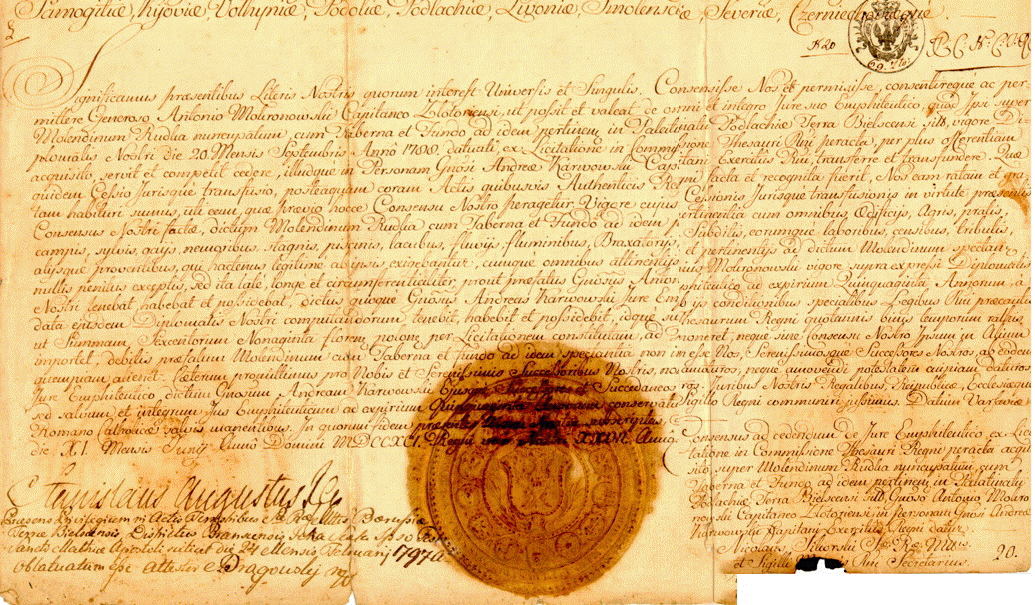 Samogitiæ, Kijoviæ Volhyniæ, Podoliæ, Podlachiæ, Livoniæ, Smolensciæ, Severiæ, Czerniechoviæque.
Significamus præsentibus Literis Nostris quorum interest Universis et Singulis. Consensisse Nos et permisisse, consentireque ac per
mittere Generoso Antonio Mokronowski Capitaneo Zlotoriensi, ut possit et valeat de omni et integro Jure suo Emphiteutico, quod Ipsi super
Molendinum Rudka nuncupatum, cum Taberna et Fundo ad idem pertinen. in Palatinatu Podlachiæ Terra Bielscensi sitt. vigore Di
plomatis Nostri die 20. Mensis Septembris Anno datuati, ex Licitatione in Commissione Thesauri Rñi peracta, per plus offerentiam
acquisito, servit et competit cedere, illudque in Personam Gñosi Andreæ Karwowski Capitani Exercitus Rñi, transferre et transfundere. Quæ
quidem Cessio Jurisque transfusio, posteaquam coram Actis quibusvis Authenticis Regni facta et recognita fuerit, Nos eam ratam et gra
tam habituri sumus, uti eam, quæ prævio hocce Consensu Nostro peragetur. Vigore cujus Cessionis Jurisque transfusionis in virtute præsentis
Consensus Nostri factæ, dictum Molendinum Rudka cum Taberna et Fundo ad idem pertinentia cum omnibus Ædificijs, Agris, pratis,
campis, sylvis, gajis, nemoribus, stagnis, piscinis, lacubus, fluvijs, fluminibus, Braxatorijs, Subditis, eorumque laboribus, censibus, tributis,
alijsque proventibus, qui hactenus legitime ad ipsis exigebantur, cumque omnibus attinentijs et pertinentijs ad dictum Molendinum spectan.
nullis penitus exceptis, sed ita late, longe et circumferentialiter, prout præfatus Gñosus Antonius Mokronowski vigore supra expressi Diplomatis
Nostri tenebat habebat et possidebat, dictus quoque Gñosus Andreas Karwowski Jure Emphiteutico ad expirium Quinquaginta Annorum, a
data ejusdem Diplomatis Nostri computandorum, tenebit, habebit et possidebit, idque sub ijs conditionibus specialibus Legibus Rñi præcauti
ut Summam, Sexcentorum Nonaginta floren. polon. per Licitationem postulatam, ad Thesaurum Regni quotannis hujus temporum ratis
importet, debitis præfatum Molendinum cum Taberna et fundo ad idem spectantia non oneret, neque sine Consensu Nostro Ipsum in Alium
quempiam alienet. Cæterum promittimus pro Nobis et Serenissimis Successoribus Nostris, non esse Nos, Serenissimosque Successores Nostros, ab eodem
Jure Emphiteutico dictum Gñosum Andream Karwowski Ejusque Successores et Succedaneos amoturos, neque amovendi potestatem cuipiam daturos
sed salvum et integrum Jus Emphiteuticum ad expirium Quinquaginta Annorum conservaturos. Juribus Nostris Regalibus, Reipublicæ, Ecclesiæque
Romano Catholicæ salvis manentibus. In quorum fidem præsentes Manu Nostra subscriptas Sigillo Regni communiri jussimus. Datum Varsaviæ
die XI. Mensis Junij Anno Domini MDCCXCI. Regni vero Nostri XXVII. Anno.
Stanislaus Augustus Rex
Præsens Privilegium in Actis
Terræ Bielscensis, Districtus Branscensis
Sancti Mathiæ Apostoli die 24 Mensis Februarij 1797 a
oblatuatum esse Attestor
Consensus ad cedendum de Jure Emphiteutico ex Lici
tatione in Commissione Thesauri Regni peracta acqui
sito, super Molendinum Rudka nuncupatum, cum
Taberna et Fundo ad idem pertinen. in Palatinatu
Podlachiæ Terra Bielscensi sitt. Gñoso Antonio Mokro
nowski Capitaneo Zlotoriensi in personam Gñosi Andreæ
Karwowski Capitani Exercitus Regni datur.
Nicolaus Sikorski Sæ Ræ Mtis
et Sigilli Rñi Secretarius.
20.